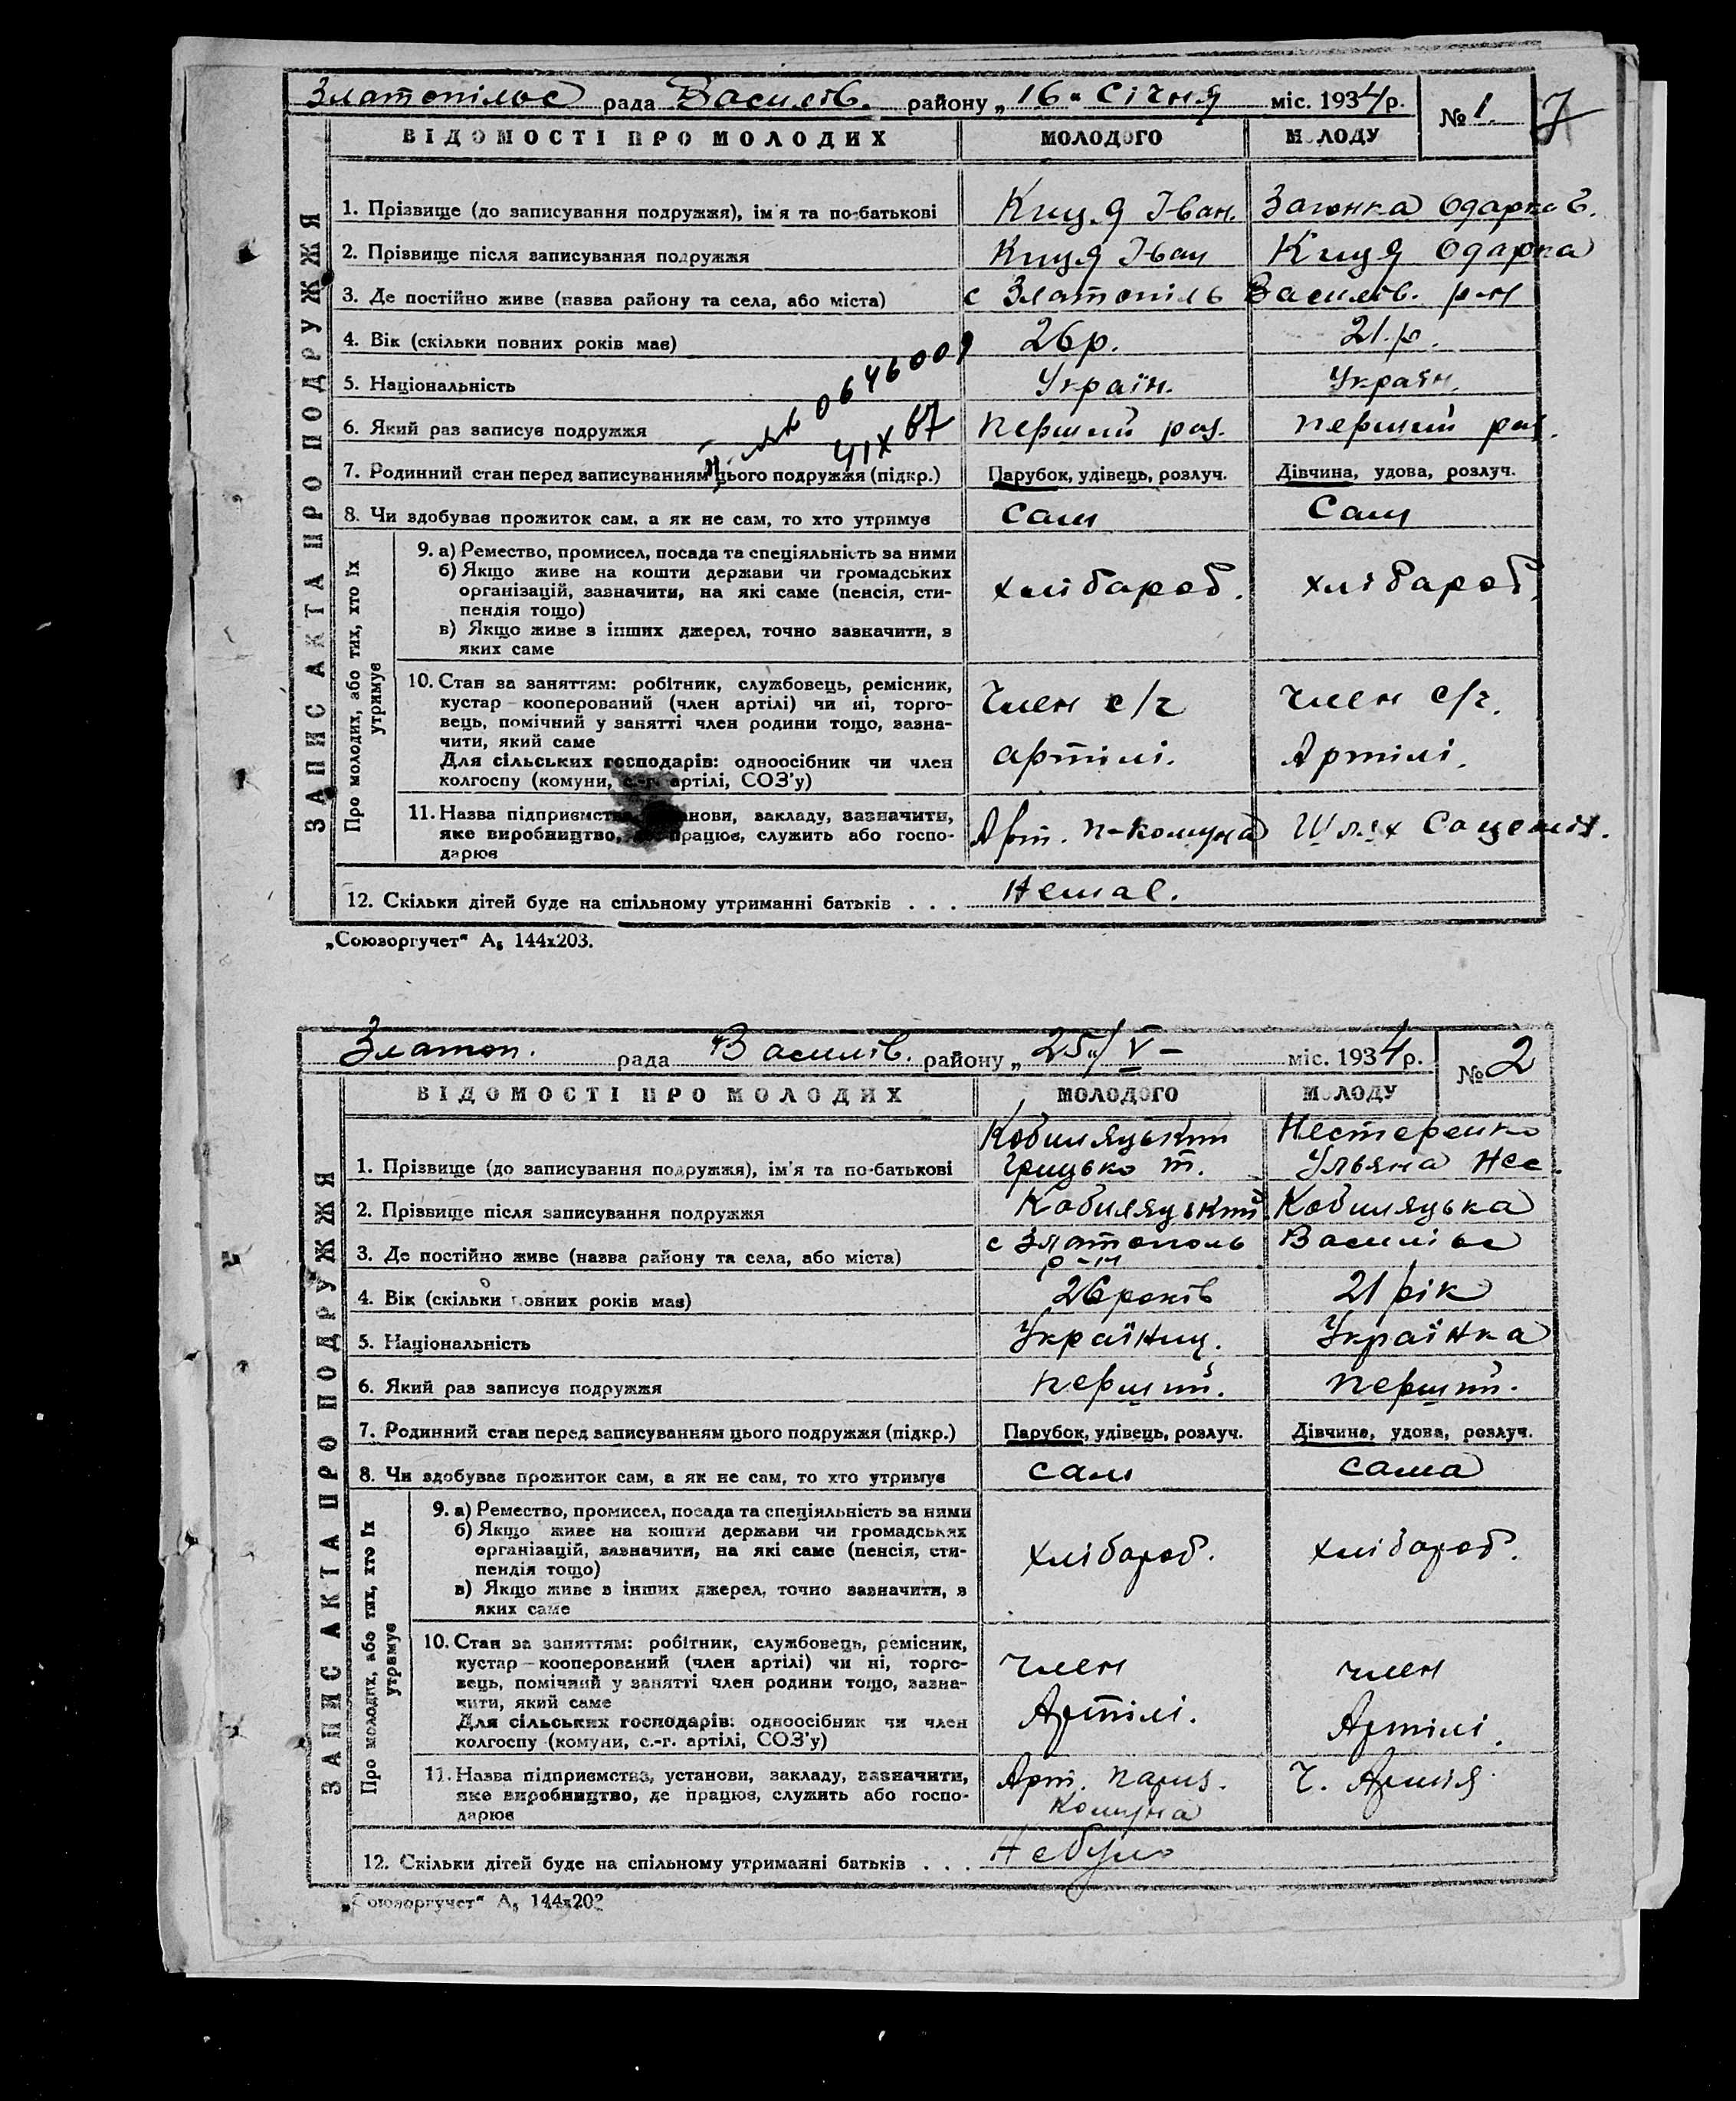 Златопільс рада Василів. району „16“ Січня міс. 1934 р. № 1. 7
ВІДОМОСТІ ПРО МОЛОДИХ МОЛОДОГО МОЛОДУ
ЗАПИС АКТА ПРО ПОДРУЖЖЯ
1. Прізвище (до записування подружжя), ім'я та по-батькові Киця Іван. Одарка
2. Прізвище після записування подружжя Киця Іван Киця Одарка
3. Де постійно живе (назва району та села, або міста) с Златопіль Василів. р-н
4. Вік (скільки повних років має) 26 р. 21 р.
5. Національність Україн. Україн.
6. Який раз записує подружжя перший раз. перший раз.
0646009
41X 67
7. Родинний стан перед записуванням цього подружжя (підкр.) Парубок, удівець, розлуч. Дівчина, удова, розлуч.
8. Чи здобуває прожиток сам, а як не сам, то хто утримує Сам Сам
Про молодих, або тих, хто їх утримує
9. а) Ремество, промисел, посада та спеціяльність за ними
б) Якщо живе на кошти держави чи громадських
організацій, зазначити, на які саме (пенсія, сти-
пендія тощо) хлібароб. хлібароб.
в) Якщо живе з інших джерел, точно зазначити, з
яких саме
10. Стан за заняттям: робітник, службовець, ремісник,
кустар — кооперований (член артілі) чи ні, торго- Член с/г член с/г.
вець, помічний у занятті член родини тощо, зазна-
чити, який саме
Для сільських господарів: одноосібник чи член артілі. Артілі.
колгоспу (комуни, с.-г. артілі, СОЗ'у)
11. Назва підприємства, установи, закладу, зазначити,
яке виробництво, де працює, служить або госпо- Арт. П-Комуна Шлях
дарює
12. Скільки дітей буде на спільному утриманні батьків . . . Немає.
„Союзоргучет“ А₅ 144х203.
Златоп. рада Василів. району „25“/V- міс. 1934 р. № 2
ВІДОМОСТІ ПРО МОЛОДИХ МОЛОДОГО МОЛОДУ
ЗАПИС АКТА ПРО ПОДРУЖЖЯ
Кобиляцький Нестеренко
1. Прізвище (до записування подружжя), ім'я та по-батькові Грицько Т. Ульяна Нес.
2. Прізвище після записування подружжя Кобиляцький. Кобиляцька
3. Де постійно живе (назва району та села, або міста) с Златополь Василівс
р-н
4. Вік (скільки повних років має) 26 років 21 рік
5. Національність Українец. Українка
6. Який раз записує подружжя перший. перший.
7. Родинний стан перед записуванням цього подружжя (підкр.) Парубок, удівець, розлуч. Дівчина, удова, розлуч.
8. Чи здобуває прожиток сам, а як не сам, то хто утримує сам сама
Про молодих, або тих, хто їх утримує
9. а) Ремество, промисел, посада та спеціяльність за ними
б) Якщо живе на кошти держави чи громадських
організацій, зазначити, на які саме (пенсія, сти- хлібороб. хлібороб.
пендія тощо)
в) Якщо живе з інших джерел, точно зазначити, з
яких саме
10. Стан за заняттям: робітник, службовець, ремісник,
кустар — кооперований (член артілі) чи ні, торго- член член
вець, помічний у занятті член родини тощо, зазна-
чити, який саме
Для сільських господарів: одноосібник чи член Артілі. Артілі.
колгоспу (комуни, с.-г. артілі, СОЗ'у)
11. Назва підприємства, установи, закладу, зазначити, Арт. Париз. Ч. Армія
яке виробництво, де працює, служить або госпо- Комуна
дарює
12. Скільки дітей буде на спільному утриманні батьків . . . Небуло
„Союзоргучет“ А₅ 144х203